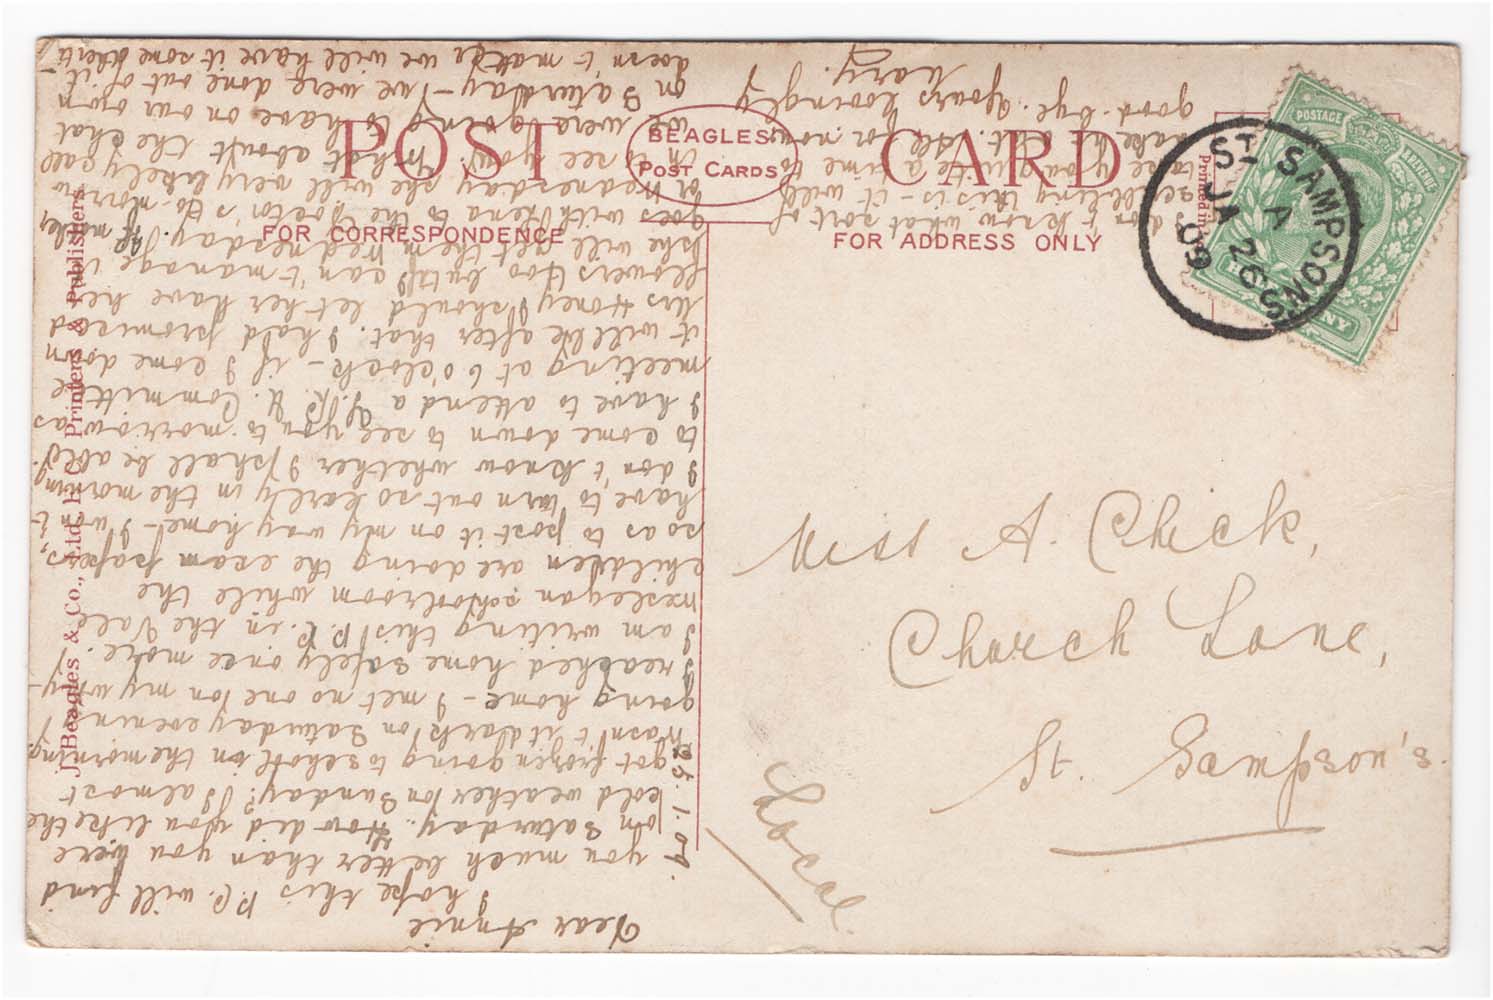 POST CARD
BEAGLES'
POST CARDS
FOR CORRESPONDENCE
FOR ADDRESS ONLY
Printed in
J. Beagles & Co., Ltd., E.C. Printers & Publishers.
POSTAGE
ST SAMPSONS
A
JA 26
09
Miss A. Chick,
Church Lane,
St. Sampson's.
Local.
25.1.09.
Dear Annie
I hope this P.C. will find
you much better than you were
on Saturday. How did you like the
cold weather on Sunday? I almost
got frozen going to school on the morning
Wasn't it dark on Saturday evening
going home – I met no one on my way –
I reached home safely once more.
I am writing this P.C. in the Vale
Wesleyan schoolroom while the
children are doing the exam papers,
so as to post it on my way home – I won't
have to turn out so early in the morning
I don't know whether I shall be able
to come down to see you to-morrow as
I have to attend a Committee
meeting at 6 o'clock – if I come down
it will be after that. I had promised
Mrs Honey I should let her have her
flowers too, but if I can't manage it
she will get them Wednesday. If mother
goes with Lena to the Doctor's to-morrow
or Wednesday she will very likely call
in to see you. What about the chat
we were going to have on our own
on Saturday – we were done out of it
doesn't matter we will have it some other ti-
don't know what sort of
scribbling this is – it will
take you quite a time to
make it out. So for now
good-bye. Yours lovingly
Mary.